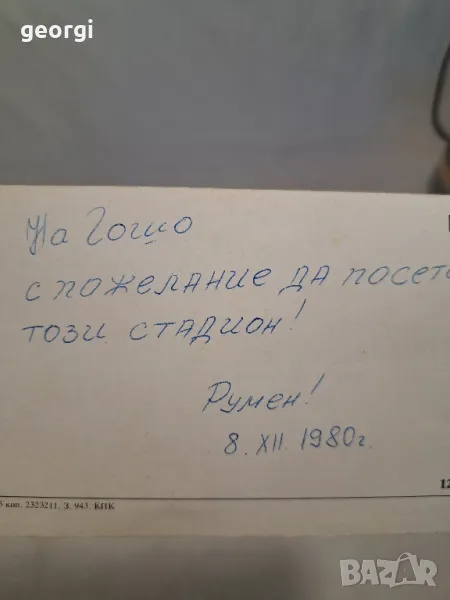 georgi
На Гошо
с пожелание да посет
този стадион!
Румен!
8. XII. 1980г.
12
5 коп. 2323211. З. 943. КПК
BAZAR